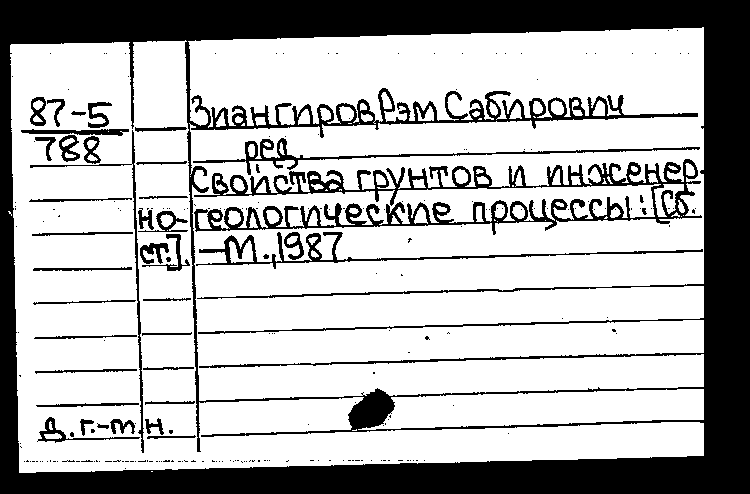 87-5 Зиангиров, Рэм Сабирович
788 ред.
Свойства грунтов и инженер-
но-геологические процессы: [Сб.
ст.]. -М., 1987.
д.г.-м.н.